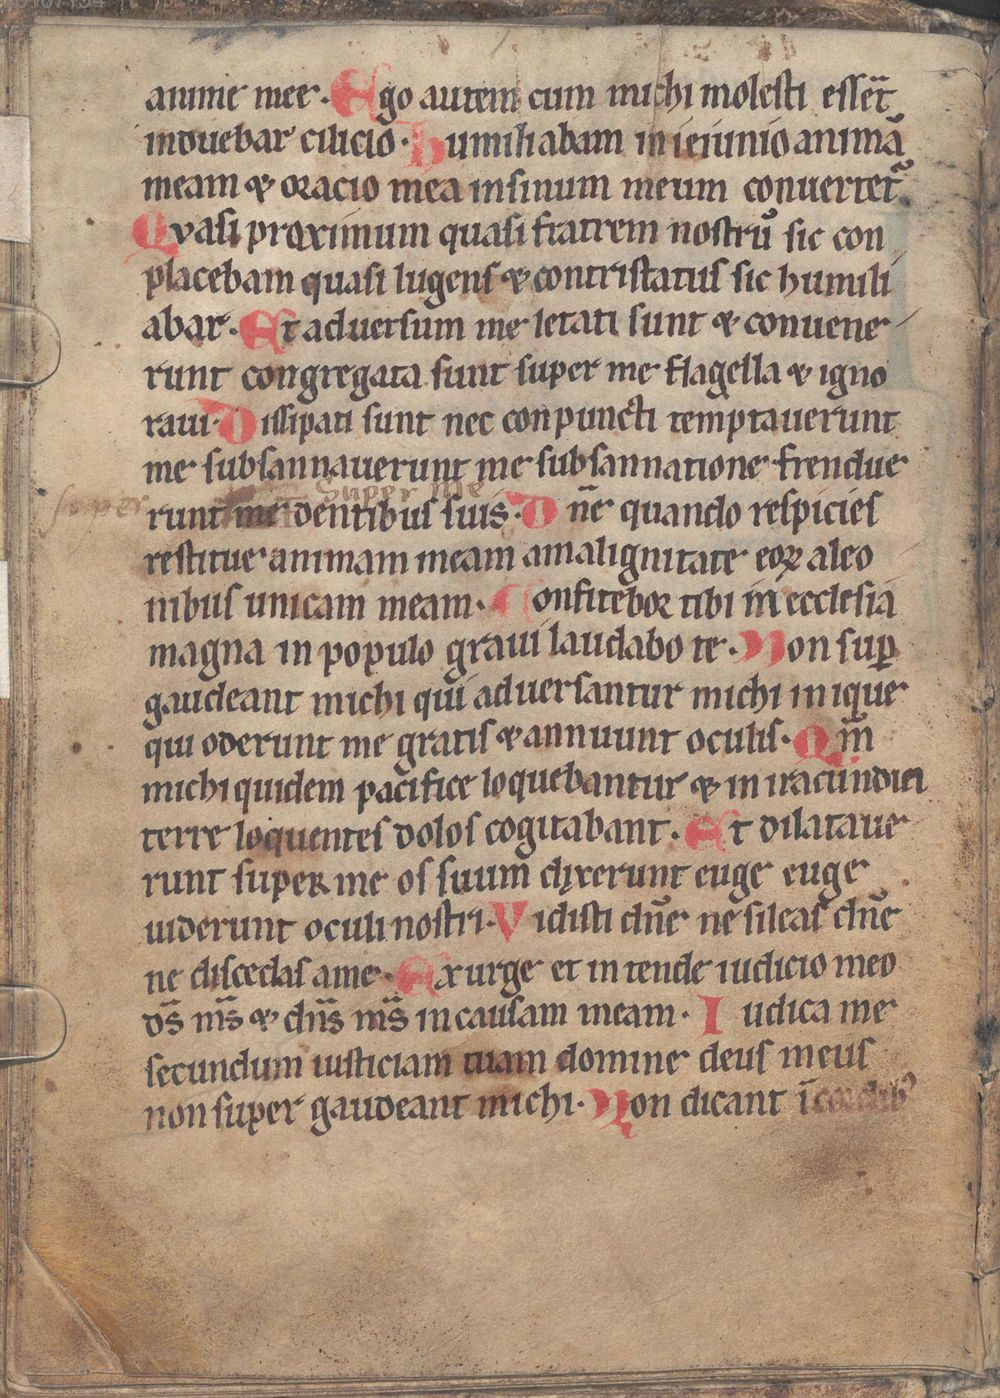 anime mee. Ego autem cum michi molesti essēt
induebar cilicio. humiliabam in ieiunio animā
meam & oracio mea insinum meum conuertet̄.
Qvasi proximum quasi fratrem nostrū sic con
placebam quasi lugens & contristatus sic humili
abar. Et aduersum me letati sunt & conuene
runt congregata sunt super me flagella & igno
raui. Dissipati sunt nec conpuncti temptauerunt
me subsannauerunt me subsannatione frendue
super super me
runt me dentibus suis. Dn̄e quando respicies
restitue animam meam amalignitate eoꝝ aleo
nibus unicam meam. Confitebor tibi in ecclesia
magna in populo graui laudabo te. Non suꝑ
gaudeant michi qui aduersantur michi inique
qui oderunt me gratis & annuunt oculis. Qm̄
michi quidem pacifice loquebantur & in iracundia
terre loquentes dolos cogitabant. Et dilataue
runt super me os suum dixerunt euge euge
uiderunt oculi nostri. Vidisti dn̄e ne sileas dn̄e
ne discedas ame. Exurge et intende iudicio meo
ds̄ ms̄ & dn̄s ms̄ incausam meam. Iudica me
secundum iusticiam tuam domine deus meus
non super gaudeant michi. Non dicant ī cordibꝰ